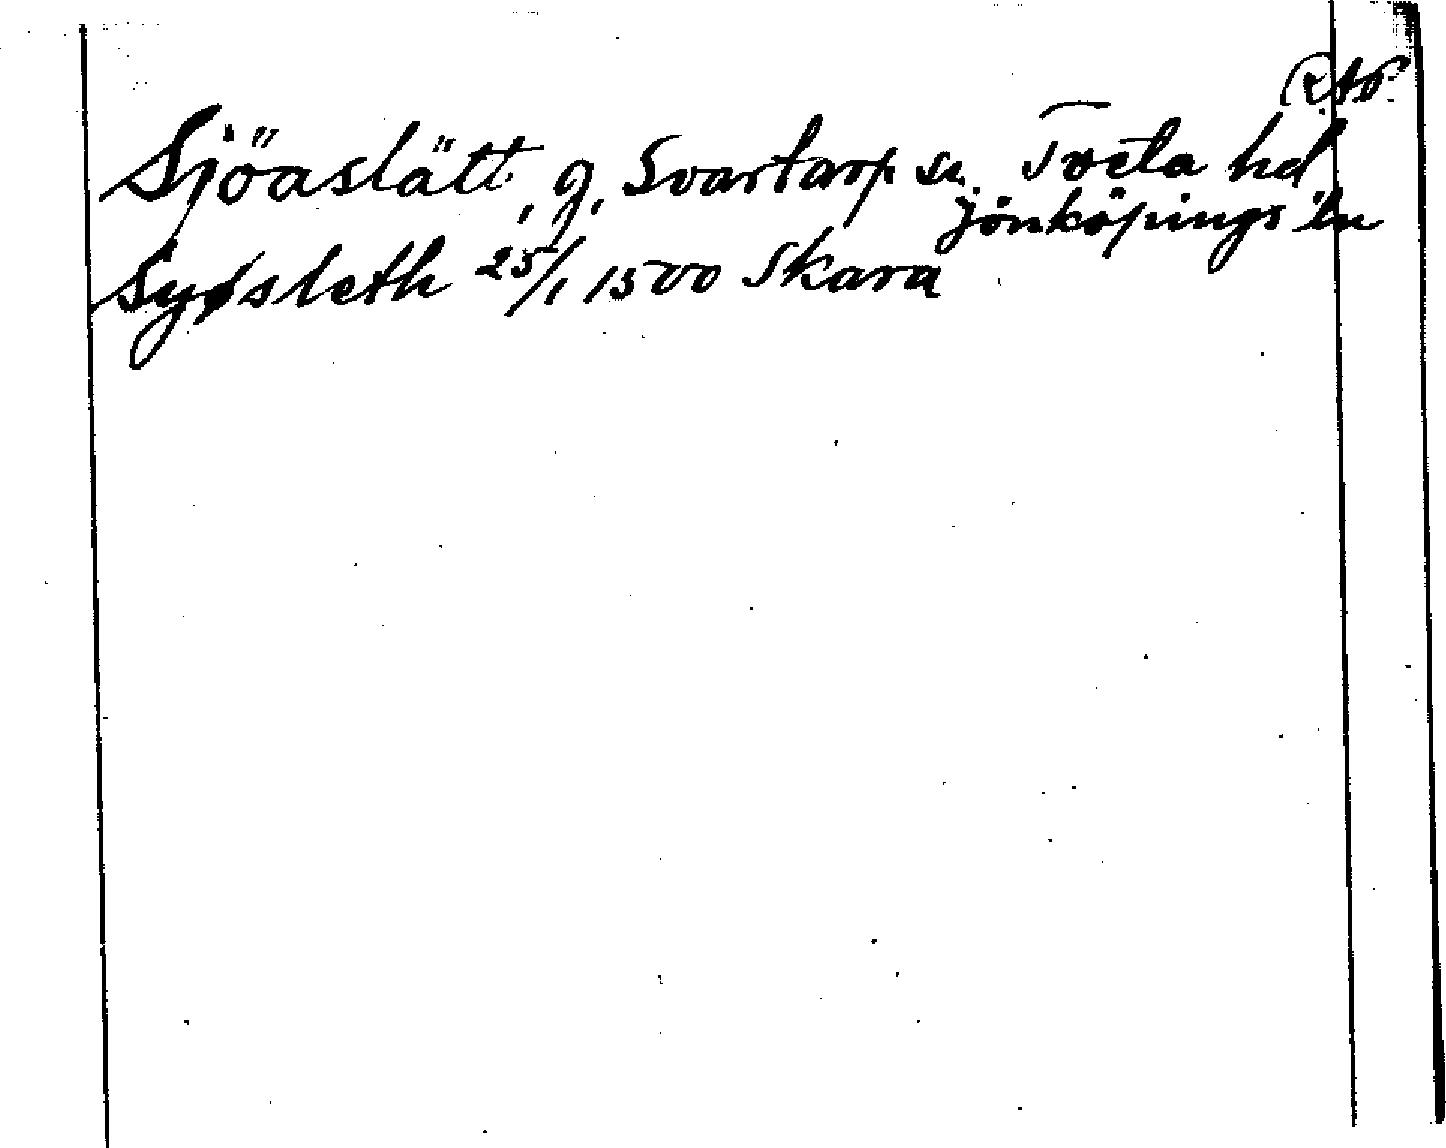 Sjöaslätt, g. Svartarp sn. Tveta hd
Jönköpings län
Syøsleth 25/1 1500 Skara